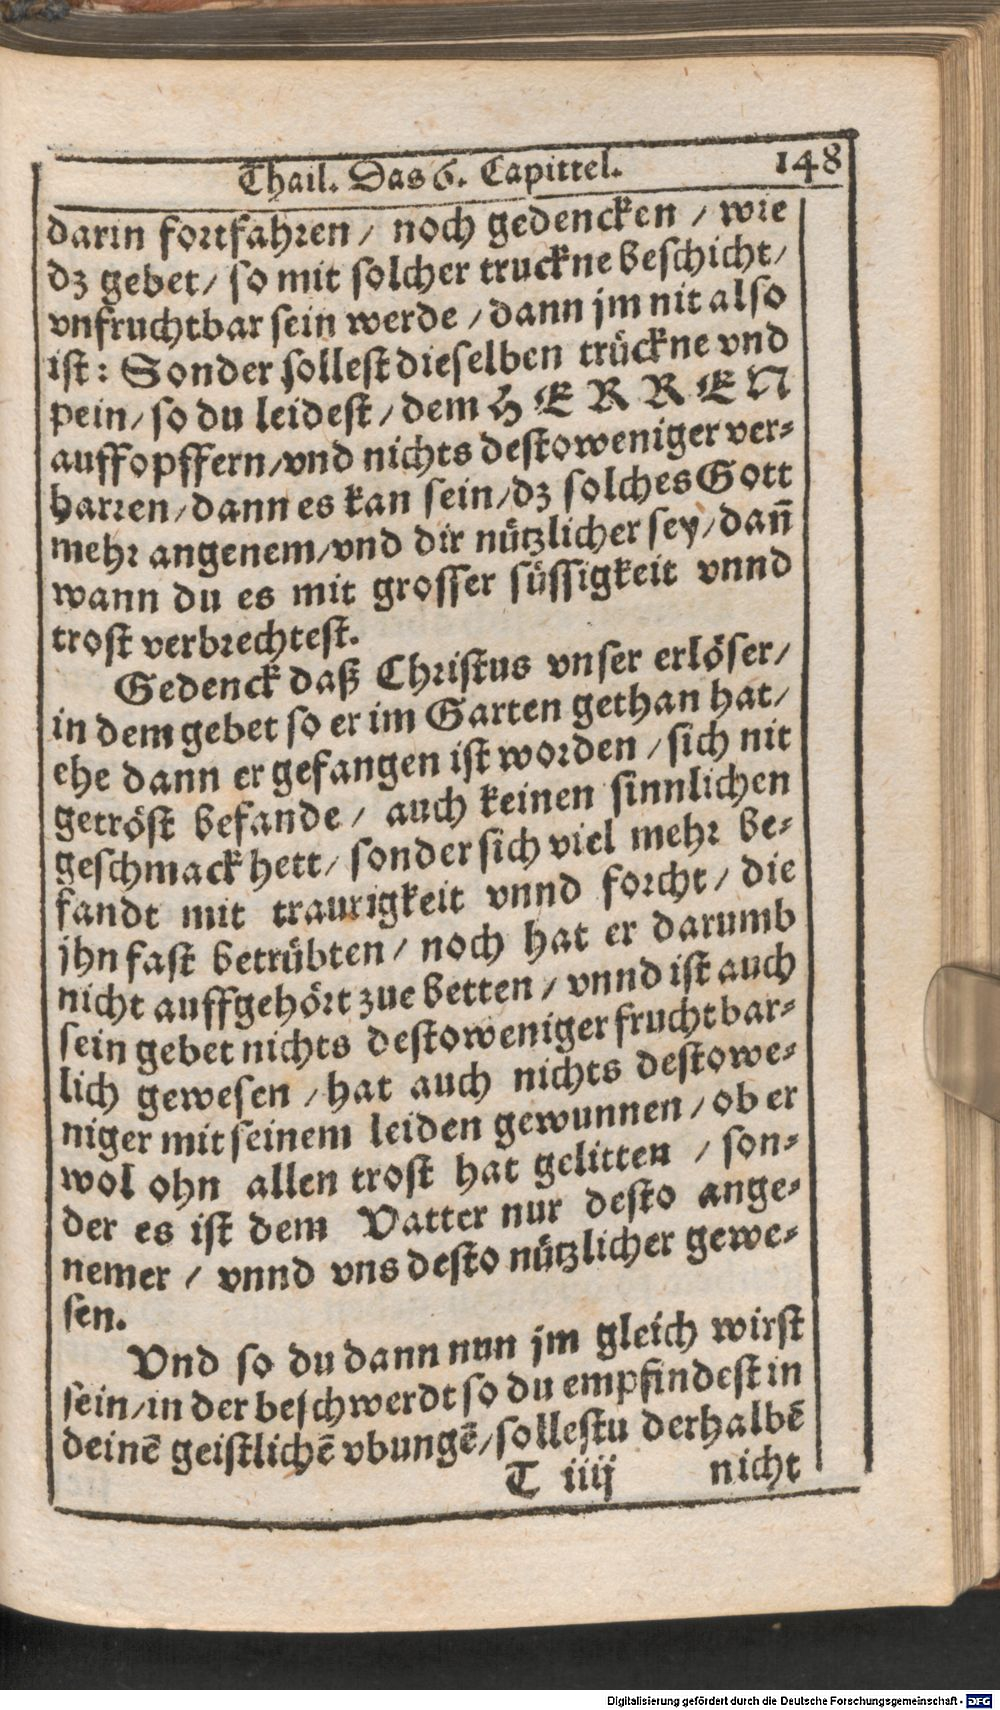 Thail. Das 6. Capittel. 148
darin fortfahren / noch gedencken / wie
dz gebet / so mit solcher truckne beschicht /
vnfruchtbar sein werde / dann jm nit also
ist: Sonder sollest dieselben trückne vnd
pein / so du leidest / dem HERREN
auffopffern / vnd nichts destoweniger ver-
harren / dann es kan sein / dz solches Gott
mehr angenem / vnd dir nützlicher sey / dañ
wann du es mit grosser süssigkeit vnnd
trost verbrechtest.
Gedenck daß Christus vnser erlöser /
in dem gebet so er im Garten gethan hat /
ehe dann er gefangen ist worden / sich nit
getröst befande / auch keinen sinnlichen
geschmack hett / sonder sich viel mehr be-
fandt mit traurigkeit vnnd forcht / die
jhn fast betrübten / noch hat er darumb
nicht auffgehört zue betten / vnnd ist auch
sein gebet nichts destoweniger fruchtbar-
lich gewesen / hat auch nichts destowe-
niger mit seinem leiden gewunnen / ob er
wol ohn allen trost hat gelitten / son-
der es ist dem Vatter nur desto ange-
nemer / vnnd vns desto nützlicher gewe-
sen.
Vnd so du dann nun jm gleich wirst
sein / in der beschwerdt so du empfindest in
deinē geistlichē vbungē / sollestu derhalbē
T iiij nicht
Digitalisierung gefördert durch die Deutsche Forschungsgemeinschaft - DFG